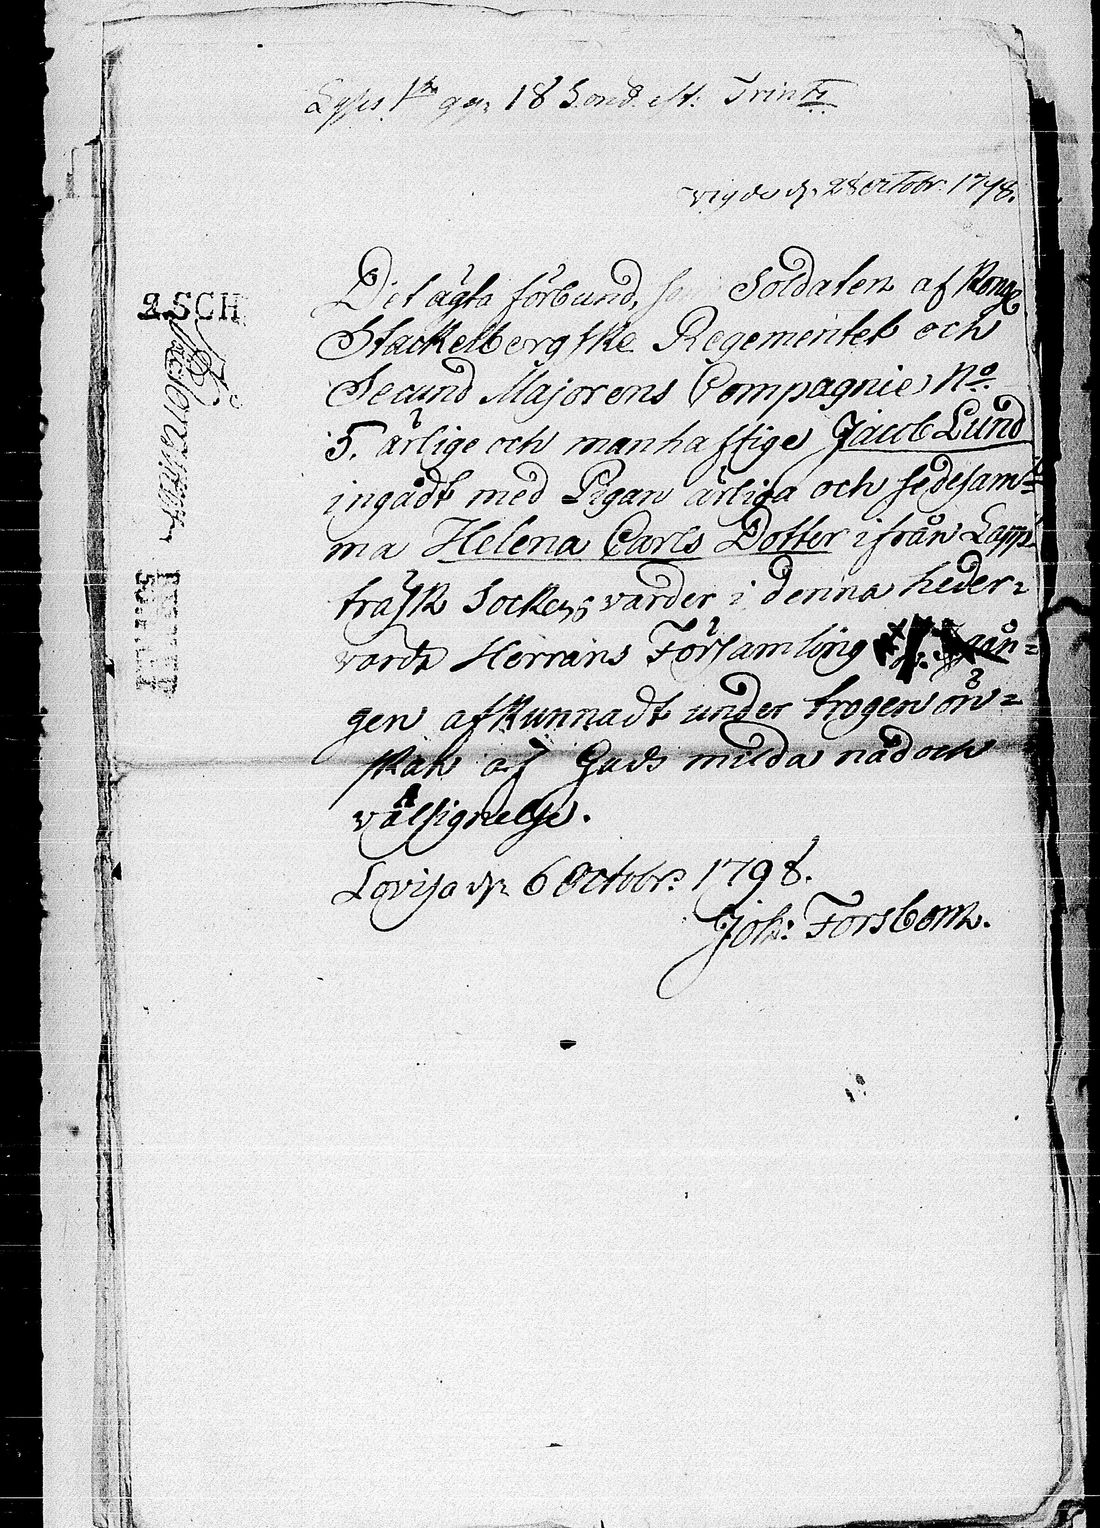 Lyses 1sta gg. 18 Sönd. eft. Trinit.
vigde d. 28 octobr. 1798.
Det ägta förbund, som Soldaten af Kongl.
2.SCH
Stackelbergske Regementet och
Secund Majorens Compagnie, No.
5. ärlige och manhaftige Jacob Lund
ingådt med Pigan ärliga och sedesam-
ma Helena Carls Dotter ifrån Lapp-
träsk Socken, varder i denna heder-
värda Herrans Församling gån-
gen afkunnadt under trogen ön-
skan af Guds milda nåd och
välsignelse.
Lovisa d. 6 Octobr. 1798.
Joh: Forsbom.